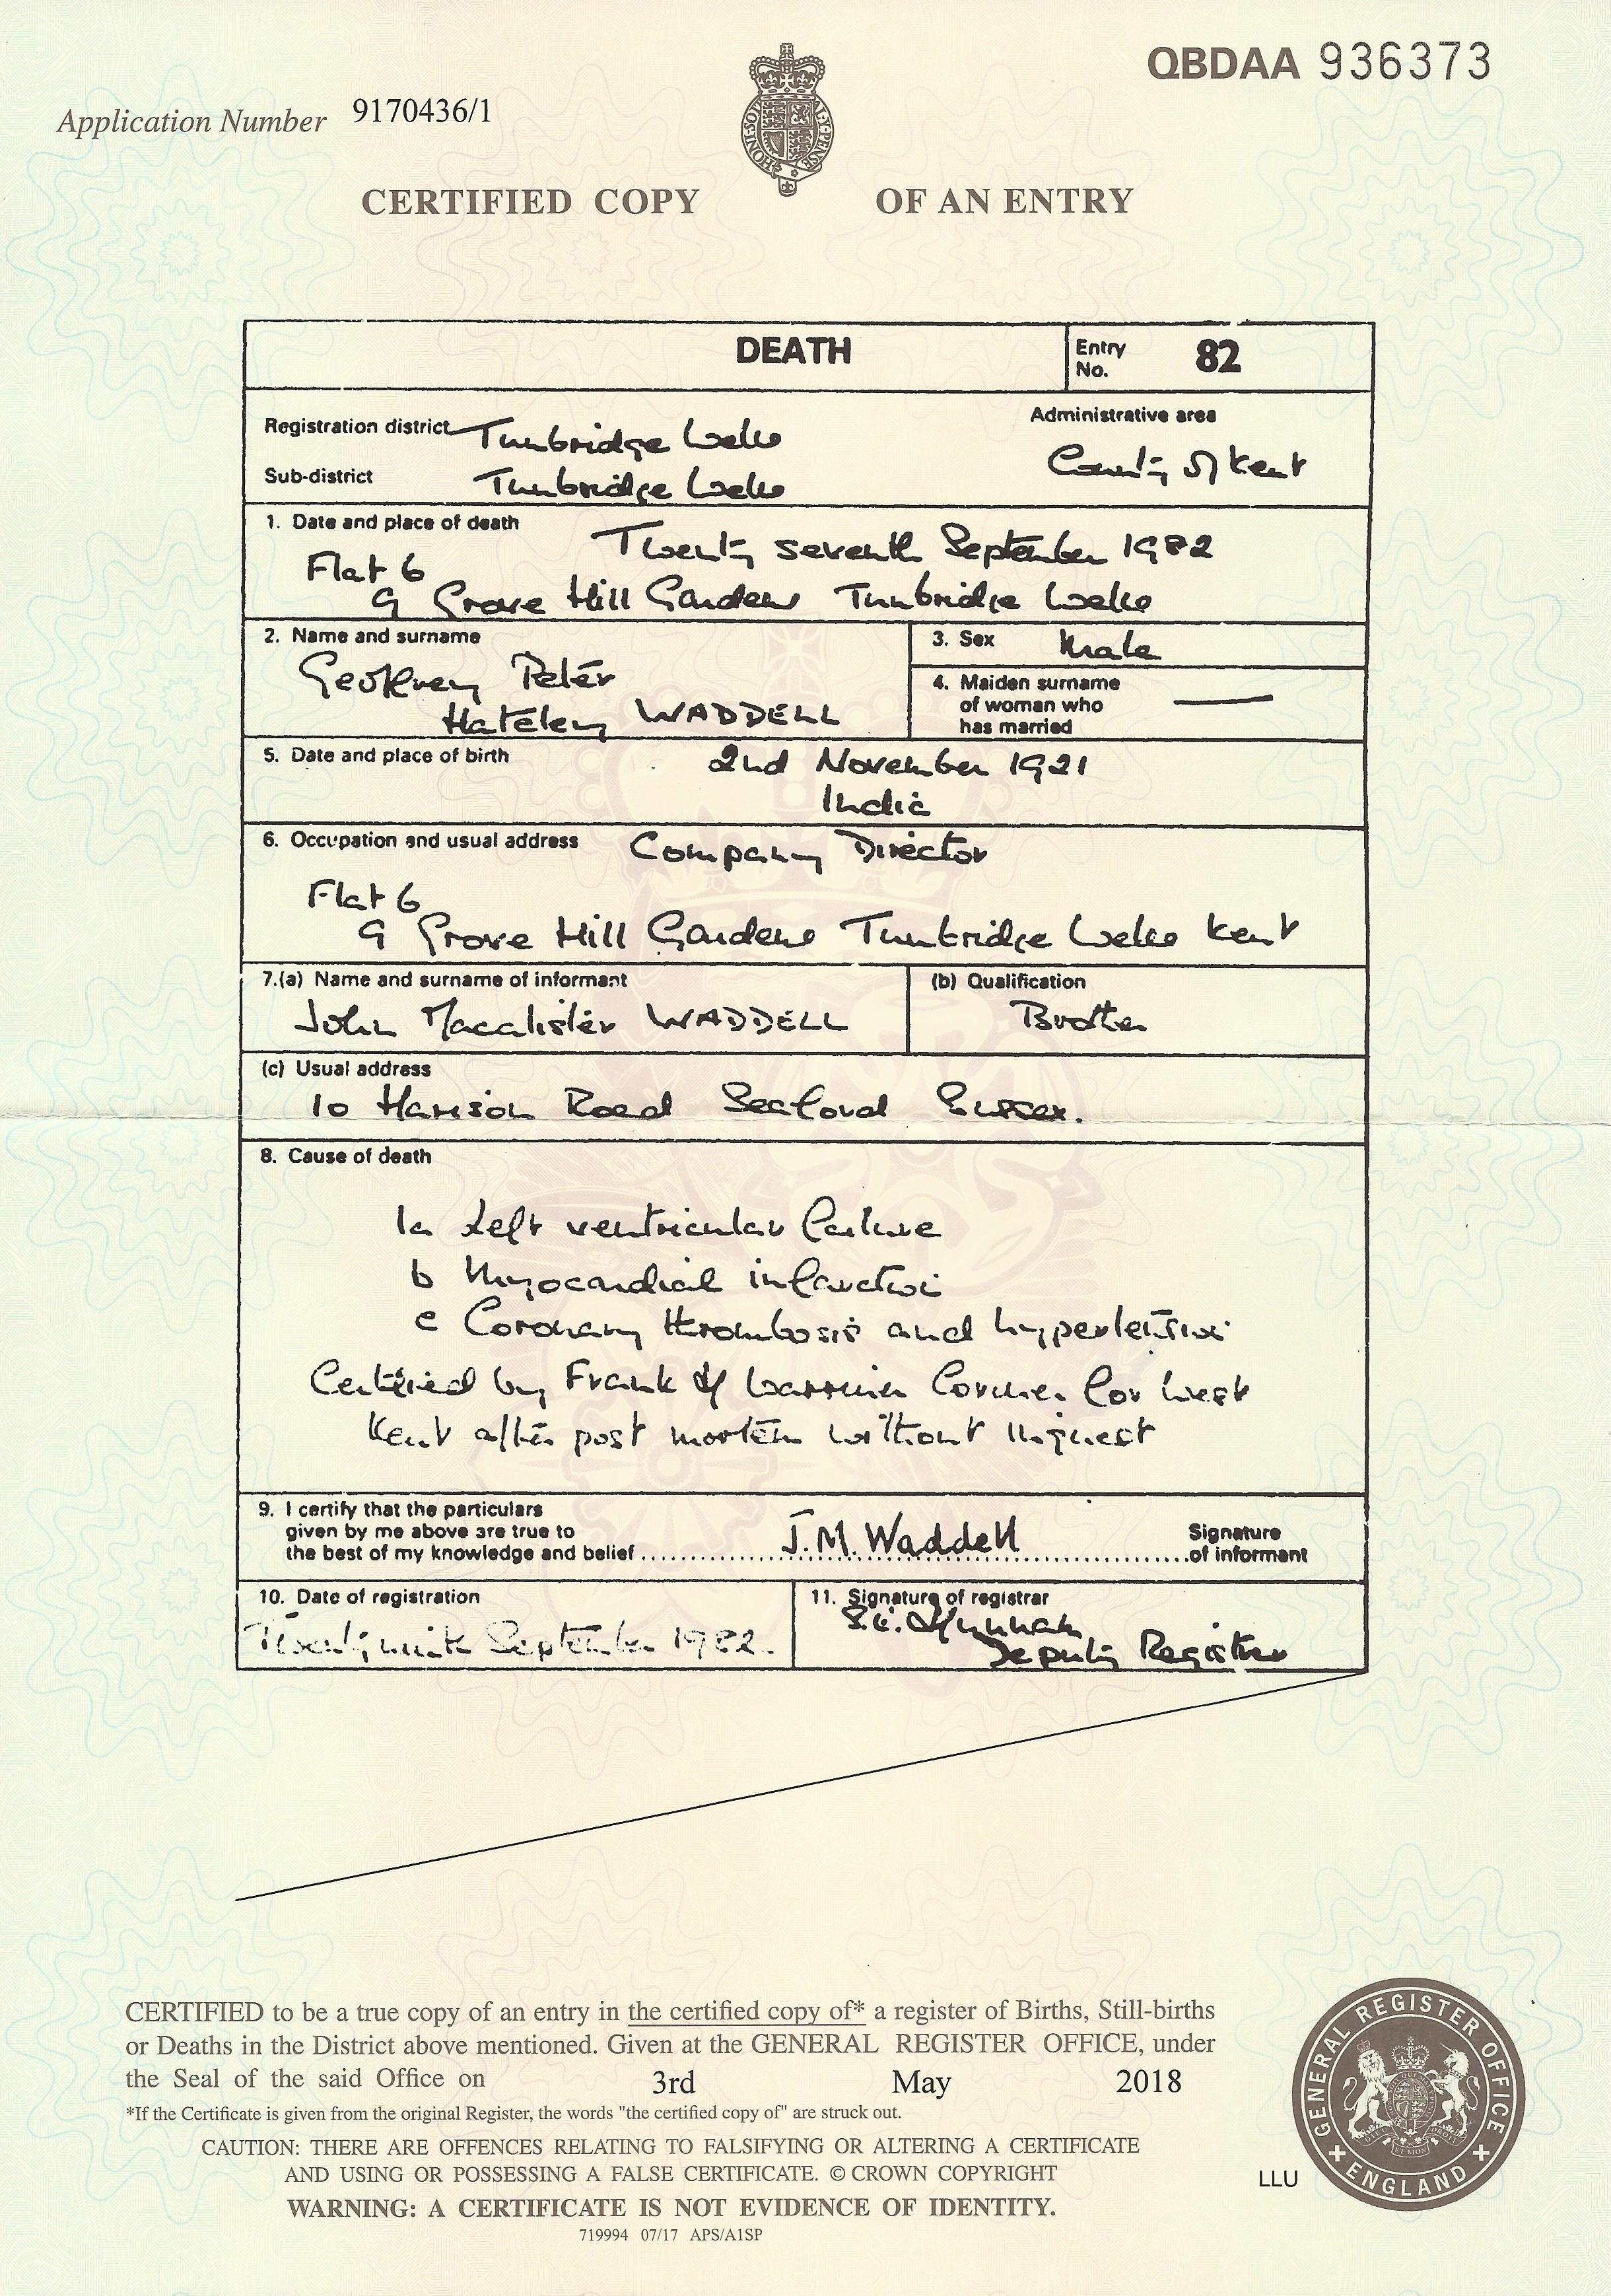 QBDAA 936373
Application Number 9170436/1
CERTIFIED COPY OF AN ENTRY
DEATH
Entry No. 82
Registration district Tunbridge Wells
Administrative area
County of Kent
Sub-district Tunbridge Wells
1. Date and place of death
Twenty seventh September 1982
Flat 6
9 Grove Hill Gardens Tunbridge Wells
2. Name and surname
Geoffrey Peter
Hateley WADDELL
3. Sex Male
4. Maiden surname
of woman who
has married
5. Date and place of birth
2nd November 1921
India
6. Occupation and usual address Company Director
Flat 6
9 Grove Hill Gardens Tunbridge Wells Kent
7.(a) Name and surname of informant
John Macalister WADDELL
(b) Qualification
Brother
(c) Usual address
10 Harison Road Seaford Sussex.
8. Cause of death
1a Left ventricular failure
b Myocardial infarction
c Coronary thrombosis and hypertension
Certified by Frank Warriner Coroner for West
Kent after post mortem without inquest
9. I certify that the particulars
given by me above are true to
the best of my knowledge and belief J.M. Waddell
Signature
of informant
10. Date of registration
September 1982.
11. Signature of registrar
Deputy Registrar
CERTIFIED to be a true copy of an entry in the certified copy of* a register of Births, Still-births
or Deaths in the District above mentioned. Given at the GENERAL REGISTER OFFICE, under
the Seal of the said Office on 3rd May 2018
*If the Certificate is given from the original Register, the words "the certified copy of" are struck out.
CAUTION: THERE ARE OFFENCES RELATING TO FALSIFYING OR ALTERING A CERTIFICATE
AND USING OR POSSESSING A FALSE CERTIFICATE. © CROWN COPYRIGHT
WARNING: A CERTIFICATE IS NOT EVIDENCE OF IDENTITY.
719994 07/17 APS/A1SP
LLU
GENERAL REGISTER OFFICE
ENGLAND